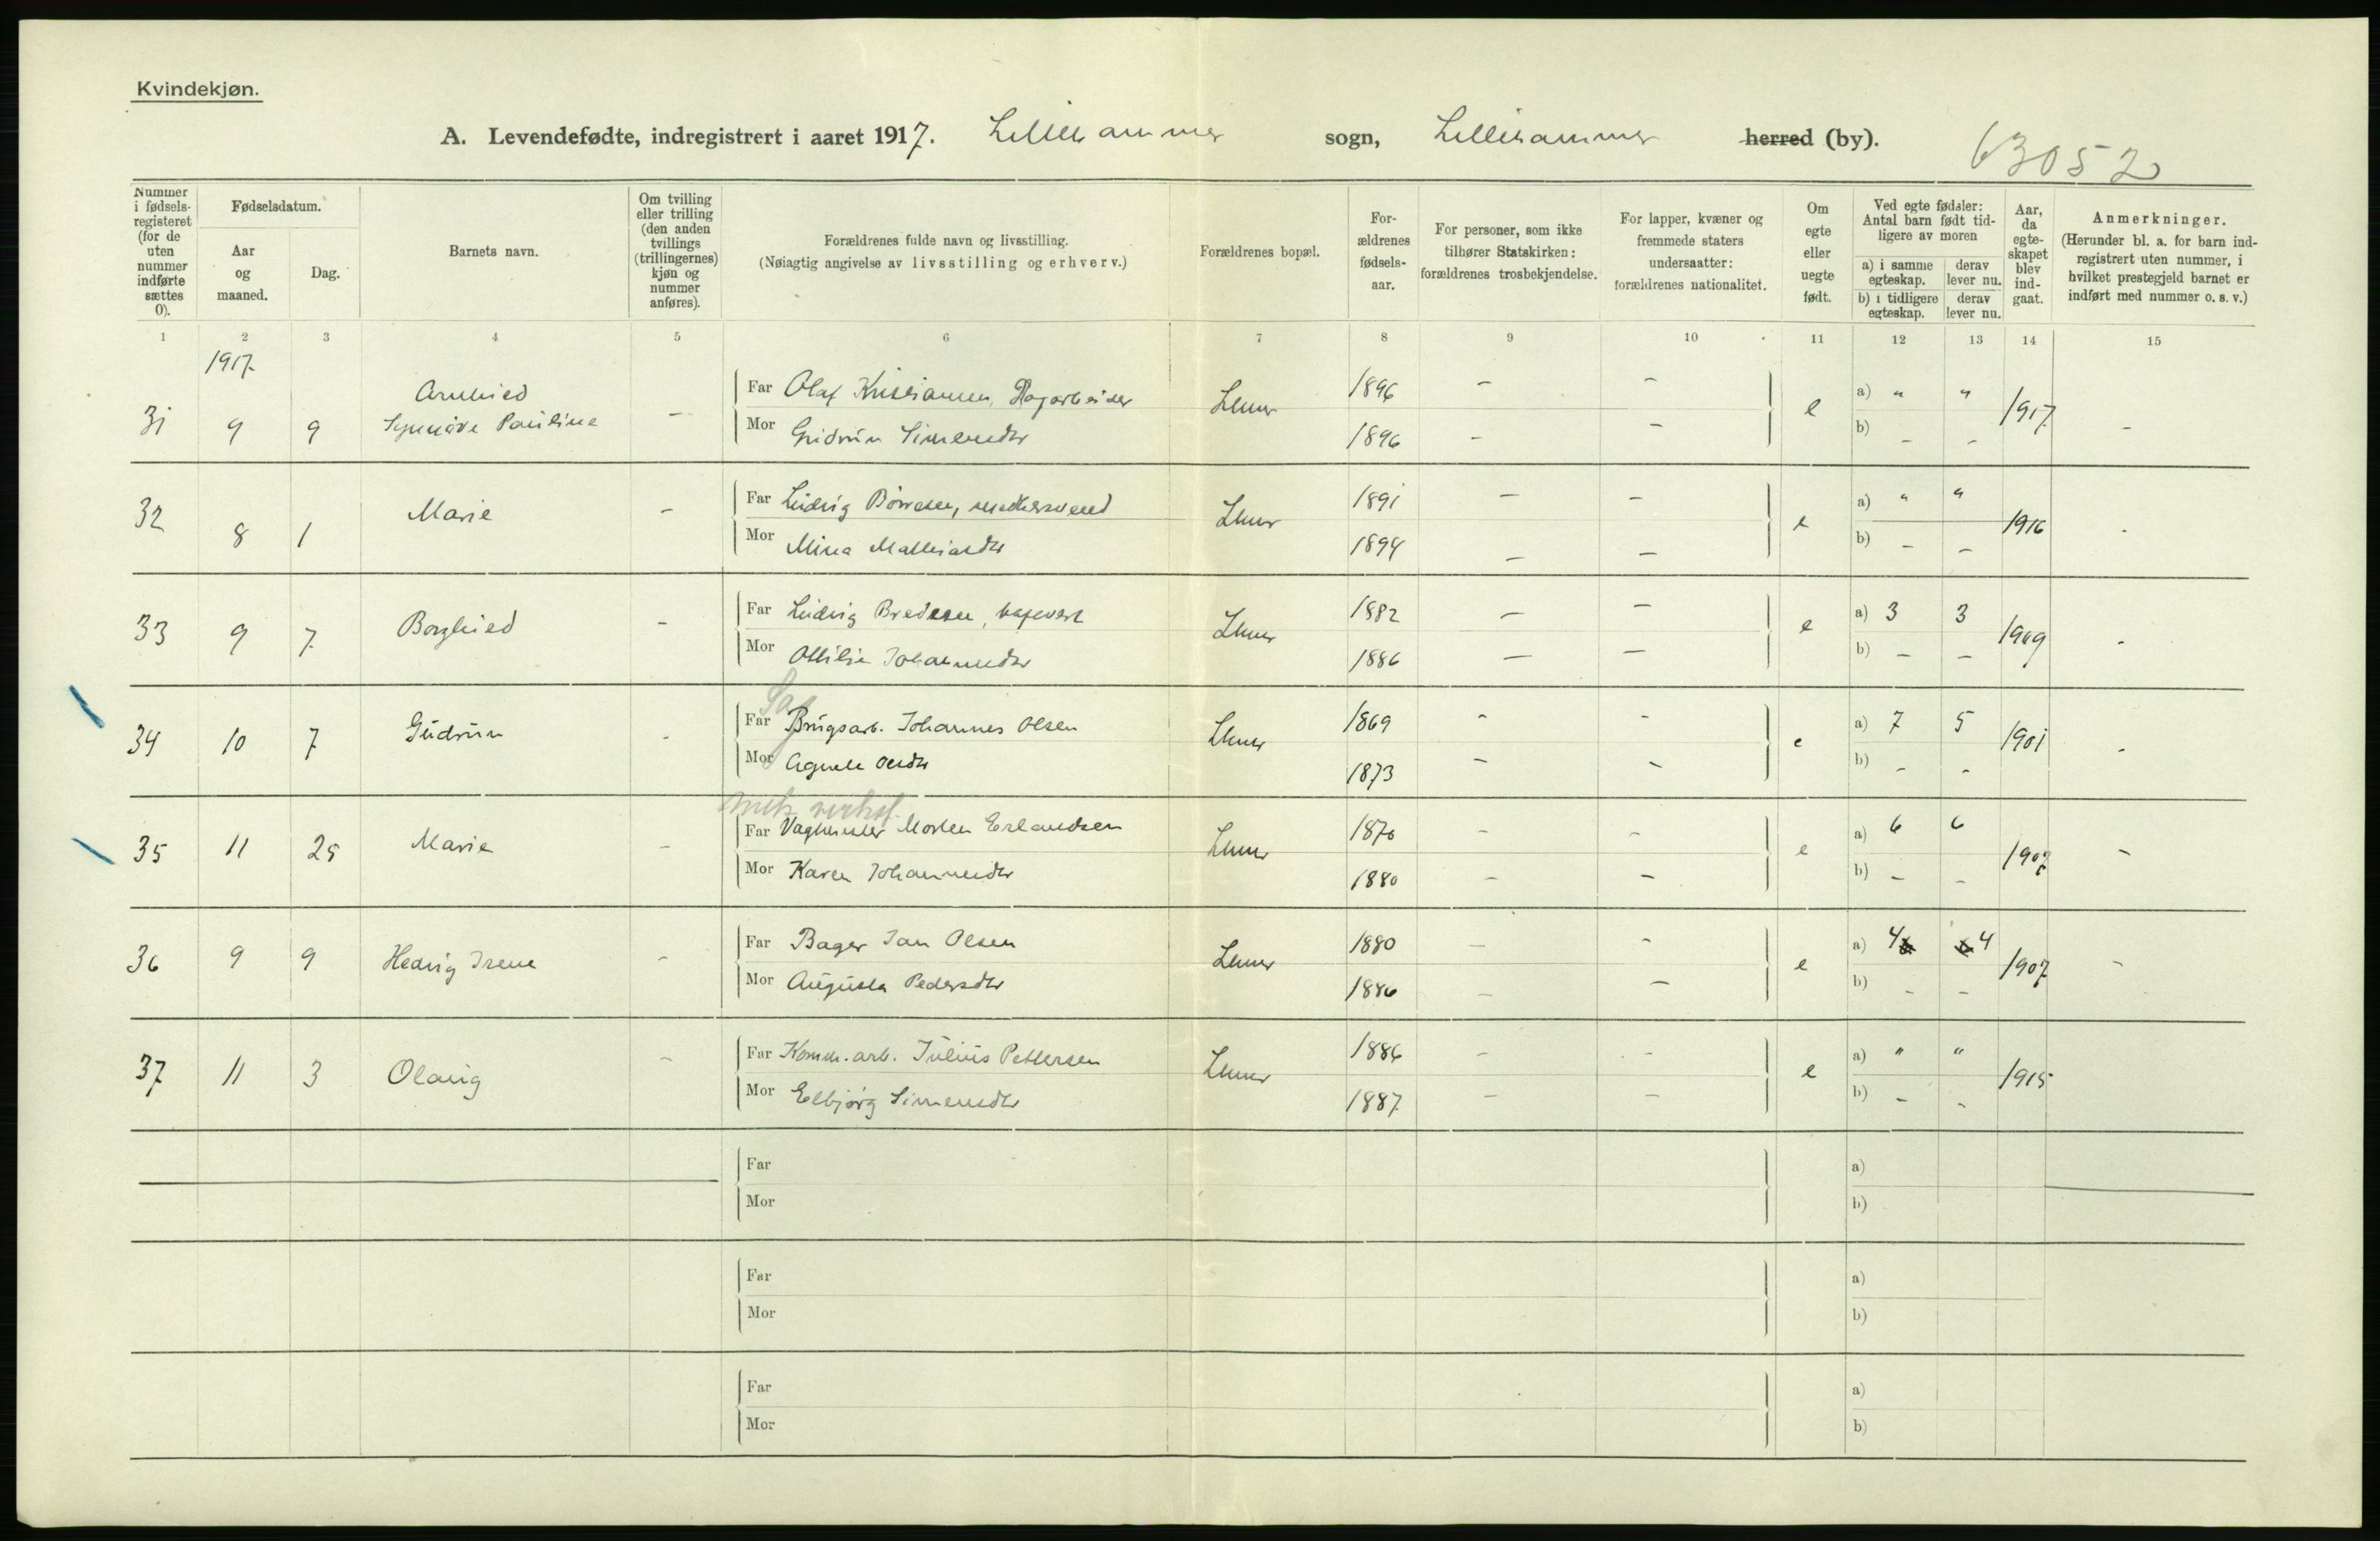 Kvindekjøn.
A. Levendefødte, indregistrert i aaret 1917. Lillehammer sogn, Lillehammer herred (by). 63052
Nummer i fødsels-registeret (for de uten nummer indførte sættes 0).
Fødselsdatum.
Aar og maaned.
Dag.
Barnets navn.
Om tvilling eller trilling (den anden tvillings (trillingernes) kjøn og nummer anføres).
Forældrenes fulde navn og livsstilling.
(Nøiagtig angivelse av livsstilling og erhverv.)
Forældrenes bopæl.
For-ældrenes fødsels-aar.
For personer, som ikke tilhører Statskirken: forældrenes trosbekjendelse.
For lapper, kvæner og fremmede staters undersaatter: forældrenes nationalitet.
Om egte eller uegte født.
Ved egte fødsler: Antal barn født tid-ligere av moren
a) i samme egteskap. derav lever nu.
b) i tidligere egteskap. derav lever nu.
Aar, da egte-skapet blev ind-gaat.
Anmerkninger.
(Herunder bl. a. for barn ind-registrert uten nummer, i hvilket prestegjeld barnet er indført med nummer o. s. v.)
1 2 3 4 5 6 7 8 9 10 11 12 13 14 15
1917.
Far Olaf Kristiansen, Dagarbeider 1896 – – a) " "
31 9 9 Synnöve Pauline – Lhmr e 1917. –
Mor Gudrun Simensdtr 1896 – – b) – –
Far Ludvig Børresen, 1891 – – a) " "
32 8 1 Marie – Lhmr e 1916 -
Mor Mina Mathiasdtr 1894 – – b) – –
Far Ludvig Bredesen, 1882 – – a) 3 3
33 9 7 Borghild – Lhmr e 1909 -
Mor Ottilie Johannesdtr 1886 – – b) – –
Far Brugsarb. Johannes Olsen 1869 - - a) 7 5
34 10 7 Gudrun - Lhmr e 1901 -
Mor Agnete 1873 – – b) – -
mek verkst.
Far Morten Erlandsen 1870 – – a) 6 6
35 11 25 Marie – Lhmr e 1907 –
Mor Karen Johannesdtr 1880 – – b) – –
Far Bager Jan Olsen 1880 – - a) 4 4
36 9 9 Hedvig Irene - Lhmr e 1907 -
Mor Augusta Pedersdtr 1886 – – b) – –
Far Komm. arb. Julius Pettersen 1886 – - a) " "
37 11 3 Olaug - Lhmr e 1915
Mor Elbjørg Simensdtr 1887. – – b) – -
Far a)
Mor b)
Far a)
Mor b)
Far a)
Mor b)